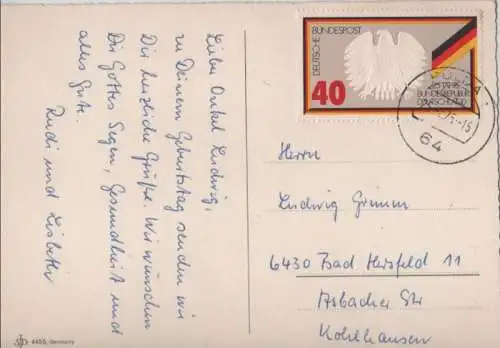 Lieber Onkel Ludwig,
zu Deinem Geburtstag senden wir
Dir herzliche Grüße. Wir wünschen
Dir Gottes Segen, Gesundheit und
alles Gute.
Rudi und Lisbeth
DEUTSCHE BUNDESPOST
40
25 JAHRE
BUNDESREPUBLIK
DEUTSCHLAND
FULDA
64
Herrn
Ludwig Grimm
6430 Bad Hersfeld 11
Asbacher Str
Kohlhausen
Germany